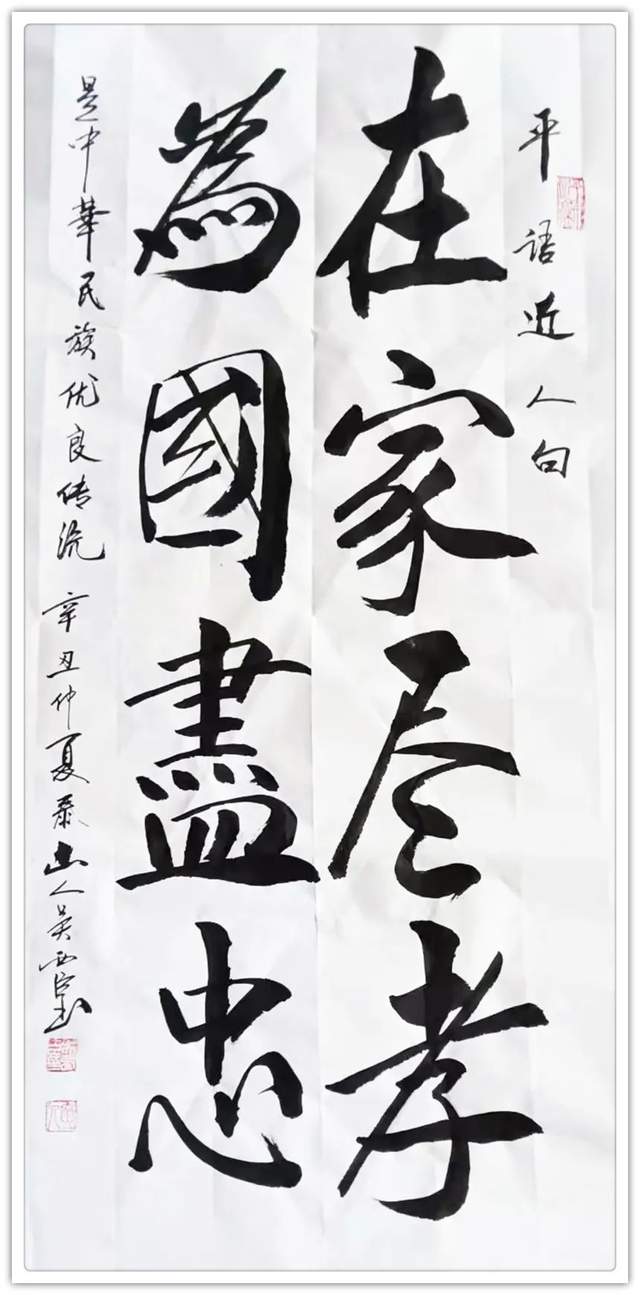 平语近人句
在家尽孝
為國盡忠
是中華民族优良传统
辛丑仲夏泰山人吴